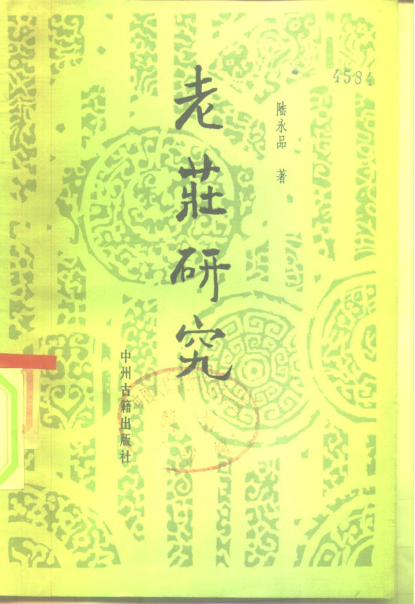 4584
陆永品 著
老莊研究
中州古籍出版社